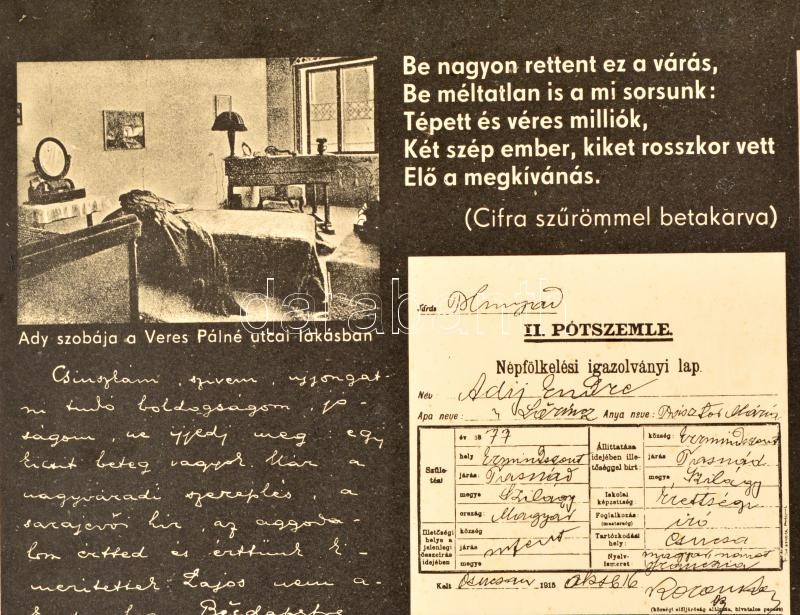 Be nagyon rettent ez a várás,
Be méltatlan is a mi sorsunk:
Tépett és véres milliók,
Két szép ember, kiket rosszkor vett
Elő a megkívánás.
(Cifra szűrömmel betakarva)
darabanth
Ady szobája a Veres Pálné utcai lakásban
Csinszkám, szivem, ujjongat-
ni tudó boldogságom, if-
júságom, ne ijjedj meg: egy
kicsit beteg vagyok. Már a
nagyváradi szereplés, a
sarajevói hir, az aggoda-
lom érted és értünk ki-
merítettek. Lajos nem a-
Budapestre
Járás
II. PÓTSZEMLE.
Népfölkelési igazolványi lap.
Név Ady Endre
Apa neve: Lőrinc Anya neve: Mária
Születési
év 1877
hely Érmindszent
járás: Tasnád
megye Szilágy
ország: Magyar
Illetőségi helye a jelenlegi összeírás idejében
község
járás
megye
Állíttatása idejében illetőséggel birt:
község: Érmindszent
járás Tasnád
megye Szilágy
Iskolai képzettség: Érettségi
Foglalkozás: (mesterség) iró
Tartózkodási hely: Csucsa
Nyelvismeret magyar német francia
Kelt Csucsa 1915 okt 16
(községi előljáróság aláírása, hivatalos pecsét)